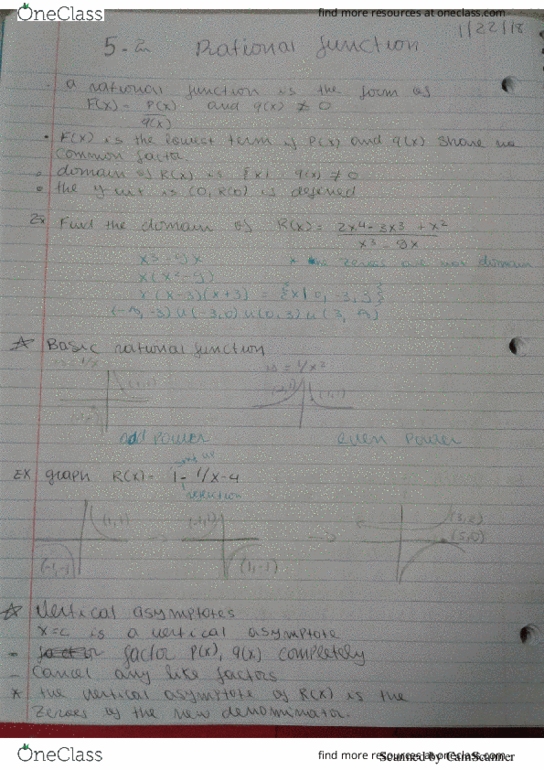 OneClass
find more resources at oneclass.com
1/22/18
5-2 Rational function
a rational function is the form of
F(x) = P(x) and q(x) ≠ 0
q(x)
• F(x) is the lowest term if P(x) and q(x) share no
common factor.
domain of R(x) is {x| q(x) ≠ 0
the y int is (0, R(0) is defined
Ex Find the domain of R(x) = 2x4 - 3x3 + x2
x3 - 9x
x3 - 9x * zeros are not domain
x(x2-9)
x(x-3)(x+3) = {x| 0, -3, 3}
(-3) u (-3,0) u (0,3) u (3,
Basic rational function
1/x 1/x2
(1,1) (1,1)
odd power even power
EX graph R(x) = 1 - 1/x-4
reflection
(1,1) (3,2)
(5,0)
(-1,-1) (1,-1)
Vertical asymptotes
x=c is a vertical asymptote
factor factor P(x), q(x) completely
- Cancel any like factors
* the vertical asymptote of R(x) is the
zeroes of the new denominator.
OneClass
find more resources at oneclass.com
Scanned by CamScanner